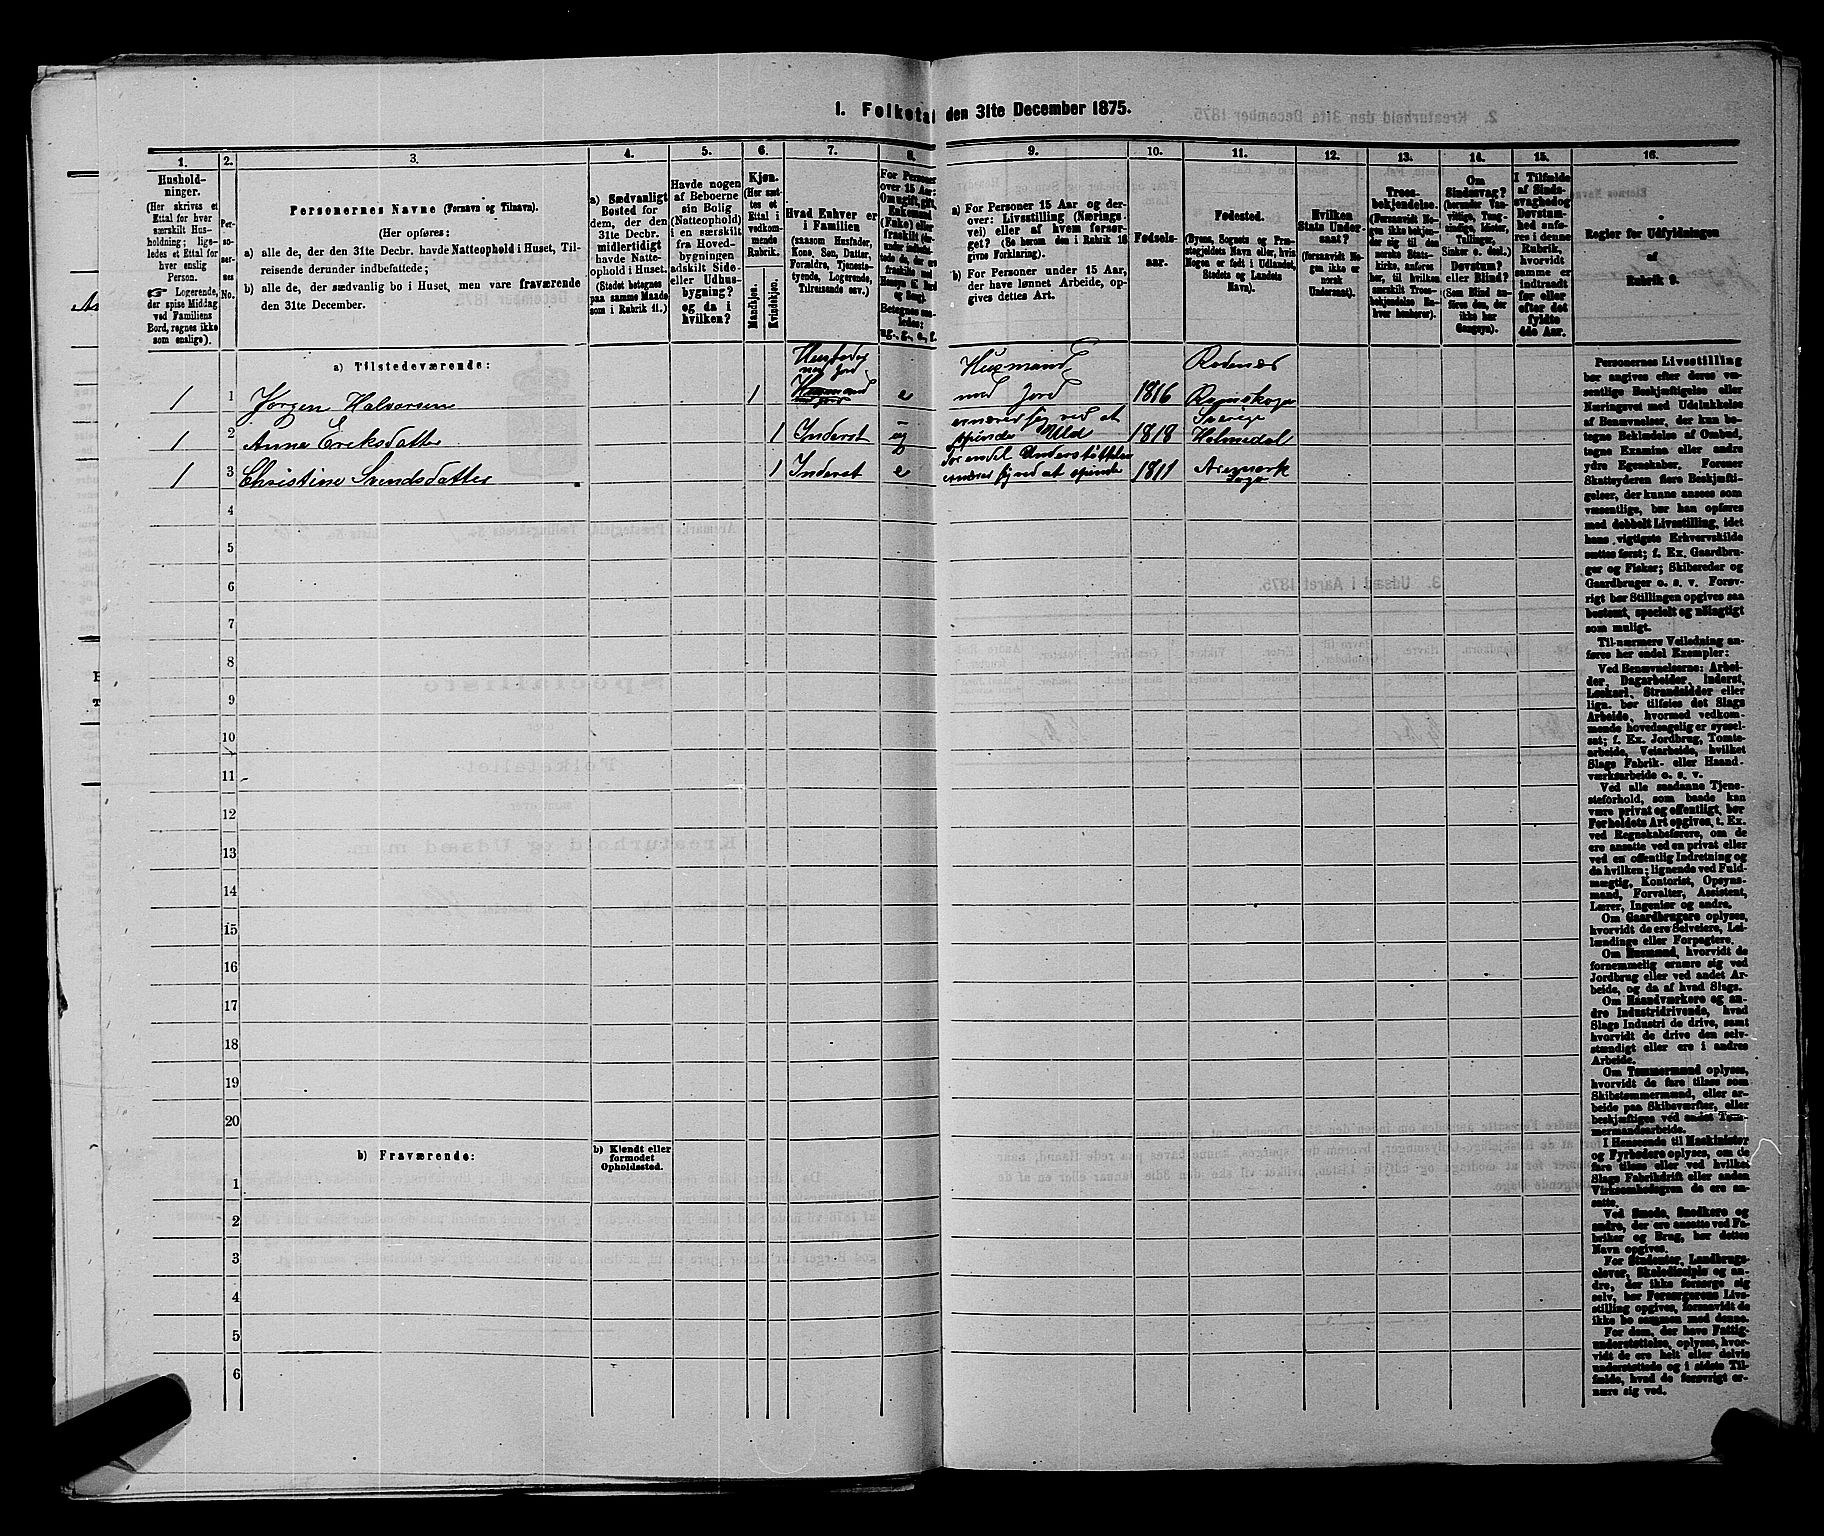 1. Folketal den 31te December 1875.
1.
2.
3.
4.
5.
6.
7.
8.
9.
10.
11.
12.
13.
14.
15.
16.
Hushold-
ninger.
(Her skrives et
Ettal for hver
særskilt Hus-
holdning; lige-
ledes et Ettal for
hver enslig
Person.
Logerende,
der spise Middag
ved Familiens
Bord, regnes ikke
som enslige).
Per-
so-
ner-
nes
No.
Personernes Navne (Fornavn og Tilnavn).
(Her opføres:
a) alle de, der den 31te Decbr. havde Natteophold i Huset, Til-
reisende derunder indbefattede;
b) alle de, der sædvanlig bo i Huset, men vare fraværende
den 31te December.
a) Sædvanligt
Bosted for
dem, der den
31te Decbr.
midlertidigt
havde Natte-
ophold i Huset.
(Stedet betegnes
paa samme Maade
som i Rubrik 11.)
Havde nogen
af Beboerne
sin Bolig
(Natteophold)
i en særskilt
fra Hoved-
bygningen
adskilt Side-
eller Udhus-
bygning?
og da
hvilken?
Kjøn.
(Her sæt-
tes et
Ettal i
vedkom-
mende
Rubrik.
Mandkjøn.
Kvindekjøn.
Hvad Enhver er
i Familien
(saasom Husfader,
Kone, Søn, Datter,
Forældre, Tjeneste-
tyende, Logerende,
Tilreisende osv.)
For Personer
over 15 Aar:
Om ugift, gift,
Enkemand
(Enke) eller
fraskilt
Betegnes saa-
ledes:
ug., g., e., f.
a) For Personer 15 Aar og der-
over: Livsstilling (Nærings-
vei) eller af hvem forsør-
get? (Se herom den i Rubrik 16
givne Forklaring).
b) For Personer under 15 Aar,
der have lønnet Arbeide, op-
gives dettes Art.
Fødsels-
aar.
Fødested.
(Byens, Sognets og Præ-
stegjeldets Navn eller, hvis
Nogen er født i Udlandet,
Stedets og Landets
Navn).
Hvilken
Stats Under-
saat?
(forsaavidt No-
gen ikke er
norsk
Undersaat).
Troes-
bekjendelse.
(Forsaavidt No-
gen ikke bekjen-
der sig til den
norske Stats-
kirke, anføres
her, til hvilken
særskilt Troes-
bekjendelse En-
hver henhører).
Om
Sindssvag?
(herunder Van-
vittige, Tung-
sindige, Idioter,
Tullinger,
Sinker o. desl.)
Døvstum?
eller Blind?
(Som Blind an-
føres den, der
ikke har
Gangsyn).
I Tilfælde
af Sinds-
svaghed og
Døvstum-
hed anfø-
res i denne
Rubrik,
hvorvidt
samme er
indtraadt
før eller
efter det
fyldte
4de Aar.
Regler for Udfyldningen
af
Rubrik 9.
a) Tilstedeværende:
1 1 Jørgen Halvorsen 1 med Jord e Husmand med Jord 1816 Rødenæs
1 2 Anne Eriksdatter 1 Inderst ug ernærer sig ved at spinde Uld 1818 Sverige
1 3 Christine Svendsdatter 1 Inderst e ernærer sig ved at spinde 1811 Aremark Sogn
4
5
6
7
8
9
10
11
12
13
14
15
16
17
18
19
20
b) Fraværende:
b) Kjendt eller
formodet
Opholdssted.
1
2
3
4
5
6
Personernes Livsstilling
bør angives efter deres væ-
sentlige Beskjæftigelse eller
Næringsvei med Udelukkelse
af Benævnelser, der kun be-
tegne Beklædelse af Ombud,
tagne Examina eller andre
ydre Egenskaber. Forener
Skatteyderen flere Beskjæfti-
gelser, der kunne ansees som
væsentlige, bør han opføres
med dobbelt Livsstilling, idet
hans vigtigste Erhvervskilde
sættes først; f. Ex. Gaardbru-
ger og Fisker; Skibsreder og
Gaardbruger o. s. v. Forøv-
rigt bør Stillingen opgives saa
bestemt, specielt og nøiagtigt
som muligt.
Til nærmere Veiledning an-
føres her endel Exempler:
Ved Benævnelserne: Arbei-
der, Dagarbeider, Inderst,
Løskarl, Strandsidder eller
lign. bør tilføies det Slags
Arbeide, hvormed vedkom-
mende hovedsagelig er syssel-
sat; f. Ex. Jordbrug, Tomte-
arbeide, Veiarbeide, hvilket
Slags Fabrik- eller Haand-
værksarbeide o. s. v.
Ved alle saadanne Tjene-
steforhold, som baade kan
være privat og offentligt, bør
Forholdets Art opgives, t. Ex.
ved Regnskabsførere, om de
ere ansatte ved en privat eller
ved en offentlig Indretning og
da hvilken; lignende ved Fuld-
mægtig, Kontorist, Opsyns-
mand, Forvalter, Assistent,
Lærer, Ingeniør og andre.
Om Gaardbrugere oplyses,
hvorvidt de ere Selveiere, Lei-
lændinge eller Forpagtere.
Om Husmænd, hvorvidt de
fornemmelig ernære sig ved
Jordbrug eller ved andet Ar-
beide, og da af hvad Slags.
Om Haandværkere og an-
dre Industridrivende, hvad
Slags Industri de drive, samt
hvorvidt de drive den selv-
stændigt eller ere i andres
Arbeide.
Om Tømmermænd oplyses,
hvorvidt de fare tilsøs som
Skibstømmermænd, eller ar-
beide paa Skibsværfter, eller
beskjæftiges ved andet Tøm-
mermandsarbeide.
I Henseende til Maskinister
og Fyrbødere oplyses, om de
fare tilsøs eller ved hvilket
Slags Fabrikdrift eller anden
Virksomhedsgren de ere an-
satte.
Ved Smede, Snedkere og
andre, der ere ansatte ved Fa-
briker og Brug, bør dettes
Navn opgives.
For Studenter, Landbrugs-
elever, Skoledisciple og an-
dre, der ikke forsørge sig
selv, bør Forsørgerens Livs-
stilling opgives, forsaavidt de
ikke bo sammen med denne.
For dem, der have Fattig-
understøttelse, oplyses, hvor-
vidt de ere helt eller delvis
understøttede og i sidste Til-
fælde, hvad de forøvrigt er-
nære sig ved.